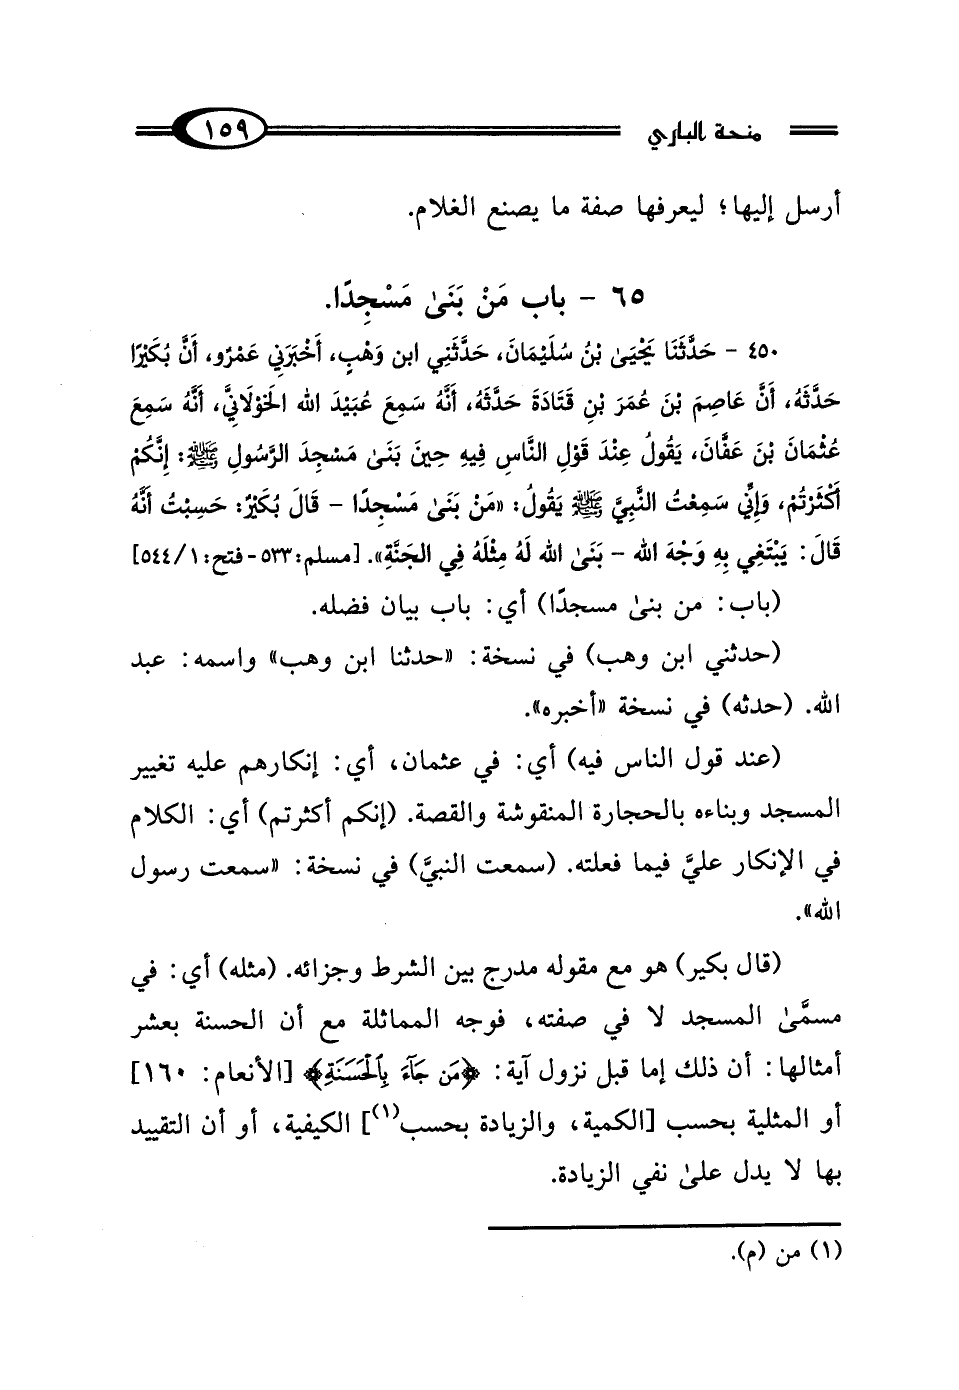 منحة الباري ١٥٩
أرسل إليها؛ ليعرفها صفة ما يصنع الغلام.
٦٥ - باب مَنْ بَنَىٰ مَسْجِدًا.
٤٥٠ - حَدَّثَنَا يَحْيَىٰ بْنُ سُلَيْمَانَ، حَدَّثَنِي ابن وَهْبٍ، أَخْبَرَنِي عَمْرٌو، أَنَّ بُكَيْرًا
حَدَّثَهُ، أَنَّ عَاصِمَ بْنَ عُمَرَ بْنِ قَتَادَةَ حَدَّثَهُ، أَنَّهُ سَمِعَ عُبَيْدَ الله الَخوْلَانِيَّ، أَنَّهُ سَمِعَ
عُثْمَانَ بْنَ عَفَّانَ، يَقُولُ عِنْدَ قَوْلِ النَّاسِ فِيهِ حِينَ بَنَىٰ مَسْجِدَ الرَّسُولِ ﷺ: إِنَّكُمْ
أَكْثَرْتُمْ، وَإِنِّي سَمِعْتُ النَّبِيَّ ﷺ يَقُولُ: «مَنْ بَنَىٰ مَسْجِدًا - قَالَ بُكَيْرٌ: حَسِبْتُ أَنَّهُ
قَالَ: يَبْتَغِي بِهِ وَجْهَ الله - بَنَىٰ الله لَهُ مِثْلَهُ فِي الجَنَّةِ». [مسلم: ٥٣٣ - فتح: ١/ ٥٤٤]
(باب: من بنىٰ مسجدًا) أي: باب بيان فضله.
(حدثني ابن وهب) في نسخة: «حدثنا ابن وهب» واسمه: عبد
الله. (حدثه) في نسخة «أخبره».
(عند قول الناس فيه) أي: في عثمان، أي: إنكارهم عليه تغيير
المسجد وبناءه بالحجارة المنقوشة والقصة. (إنكم أكثرتم) أي: الكلام
في الإنكار عليَّ فيما فعلته. (سمعت النبيَّ) في نسخة: «سمعت رسول
الله».
(قال بكير) هو مع مقوله مدرج بين الشرط وجزائه. (مثله) أي: في
مسمَّىٰ المسجد لا في صفته، فوجه المماثلة مع أن الحسنة بعشر
أمثالها: أن ذلك إما قبل نزول آية: ﴿مَن جَآءَ بِٱلْحَسَنَةِ﴾ [الأنعام: ١٦٠]
أو المثلية بحسب [الكمية، والزيادة بحسب(١)] الكيفية، أو أن التقييد
بها لا يدل علىٰ نفي الزيادة.
(١) من (م).